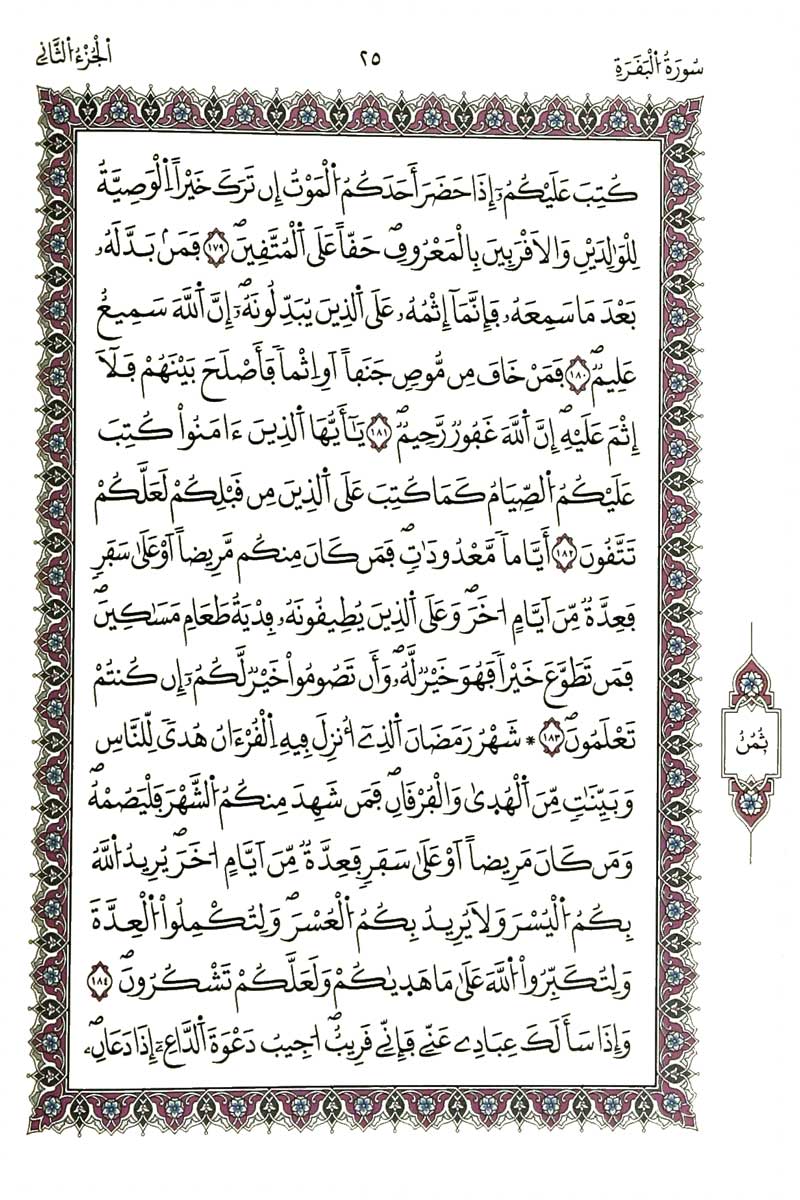 سُورَةُ الْبَقَرَةِ
٢٥
الْجُزْءُ الثَّانِي
كُتِبَ عَلَيْكُمُۥٓ إِذَا حَضَرَ أَحَدَكُمُ الْمَوْتُ إِن تَرَكَ خَيْراً اِلْوَصِيَّةُ
لِلْوَٰلِدَيْنِ وَالَاقْرَبِينَ بِالْمَعْرُوفِۖ حَقّاً عَلَى الْمُتَّقِينَۖ ١٧٩ فَمَنۢ بَدَّلَهُۥ
بَعْدَ مَا سَمِعَهُۥ فَإِنَّمَآ إِثْمُهُۥ عَلَى الذِينَ يُبَدِّلُونَهُۥٓۖ إِنَّ اللَّهَ سَمِيعٌ
عَلِيمٌۖ ١٨٠ فَمَنْ خَافَ مِن مُّوصٍ جَنَفاً اَوِ اِثْماً فَأَصْلَحَ بَيْنَهُمْ فَلَآ
إِثْمَ عَلَيْهِۖ إِنَّ اللَّهَ غَفُورٌ رَّحِيمٌۖ ١٨١ يَٰٓأَيُّهَا الذِينَ ءَامَنُواْ كُتِبَ
عَلَيْكُمُ الصِّيَامُ كَمَا كُتِبَ عَلَى الذِينَ مِن قَبْلِكُمْ لَعَلَّكُمْ
تَتَّقُونَ ١٨٢ أَيَّاماً مَّعْدُودَٰتٍۖ فَمَن كَانَ مِنكُم مَّرِيضاً اَوْ عَلَىٰ سَفَرٍ
فَعِدَّةٌ مِّنَ اَيَّامٍ اُخَرَۖ وَعَلَى الذِينَ يُطِيقُونَهُۥ فِدْيَةُ طَعَامِ مَسَٰكِينَۖ
فَمَن تَطَوَّعَ خَيْراً فَهُوَ خَيْرٌ لَّهُۥۖ وَأَن تَصُومُواْ خَيْرٌ لَّكُمُۥٓ إِن كُنتُمْ
تَعْلَمُونَۖ ١٨٣ * شَهْرُ رَمَضَانَ الذِےٓ أُنزِلَ فِيهِ اِلْقُرْءَانُ هُدىً لِّلنَّاسِ
وَبَيِّنَٰتٍ مِّنَ اَلْهُدَىٰ وَالْفُرْقَانِۖ فَمَن شَهِدَ مِنكُمُ الشَّهْرَ فَلْيَصُمْهُۖ
وَمَن كَانَ مَرِيضاً اَوْ عَلَىٰ سَفَرٍ فَعِدَّةٌ مِّنَ اَيَّامٍ اُخَرَۖ يُرِيدُ اللَّهُ
بِكُمُ الْيُسْرَ وَلَا يُرِيدُ بِكُمُ الْعُسْرَۖ وَلِتُكْمِلُواْ الْعِدَّةَ
وَلِتُكَبِّرُواْ اللَّهَ عَلَىٰ مَا هَدَىٰكُمْ وَلَعَلَّكُمْ تَشْكُرُونَۖ ١٨٤
وَإِذَا سَأَلَكَ عِبَادِے عَنِّے فَإِنِّے قَرِيبٌۖ اُجِيبُ دَعْوَةَ الدَّاعِۦٓ إِذَا دَعَانِۦۖ
ثُمُنُ